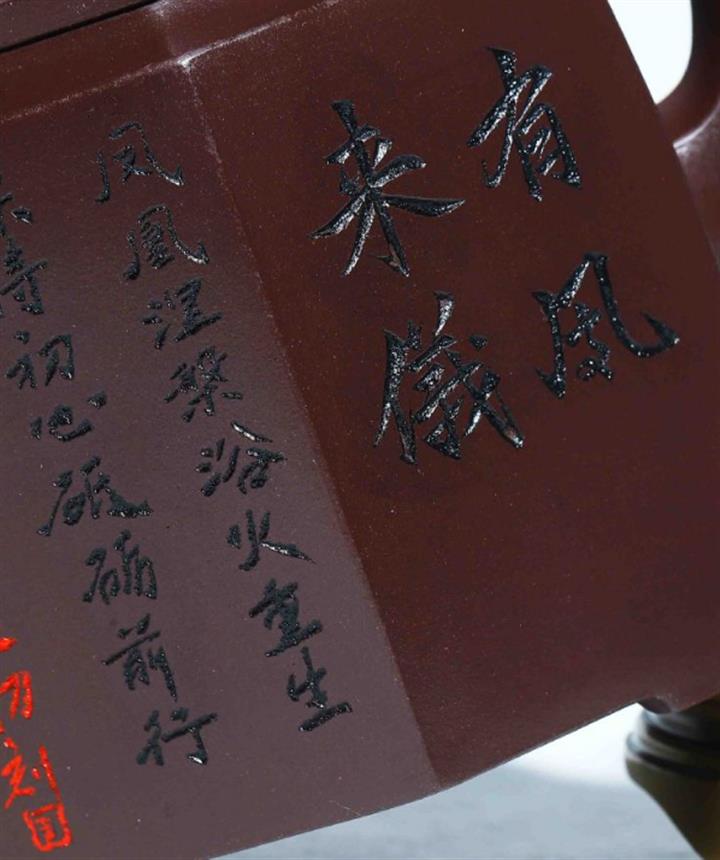 有凤
来儀
凤凰涅槃浴火重生
初心砥砺前行
刻